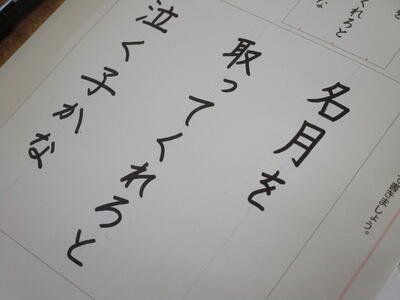 名月を
取ってくれろと
泣く子かな
を
くれろと
な
書きましょう。